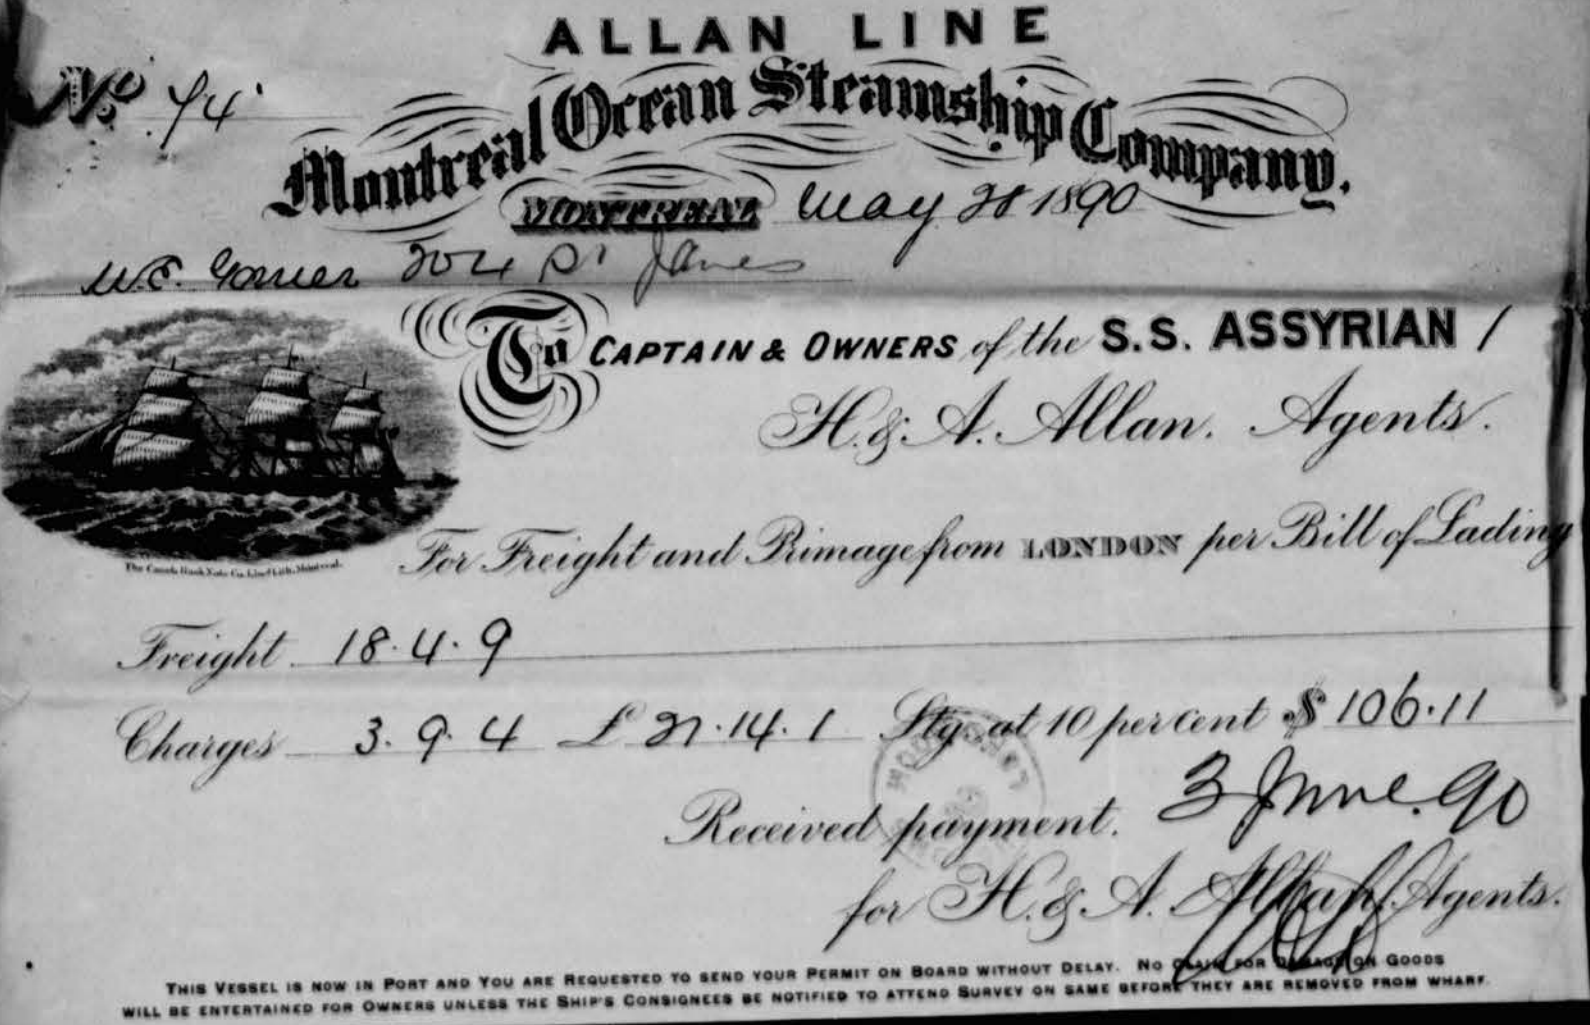 ALLAN LINE
No 74
Montreal Ocean Steamship Company.
MONTREAL May 28 1890
W.E. 204 St James
To CAPTAIN & OWNERS of the S.S. ASSYRIAN /
H. & A. Allan. Agents.
The Canada Bank Note Co. Lim'd Lith. Montreal.
For Freight and Primage from LONDON per Bill of Lading
Freight 18.4.9
Charges 3.9.4 £ 21.14.1 Stg. at 10 per cent $ 106.11
Received payment. 3 June. 90
for H. & A. Allan. Agents.
THIS VESSEL IS NOW IN PORT AND YOU ARE REQUESTED TO SEND YOUR PERMIT ON BOARD WITHOUT DELAY. NO CLAIM FOR DAMAGE ON GOODS
WILL BE ENTERTAINED FOR OWNERS UNLESS THE SHIP'S CONSIGNEES BE NOTIFIED TO ATTEND SURVEY ON SAME BEFORE THEY ARE REMOVED FROM WHARF.